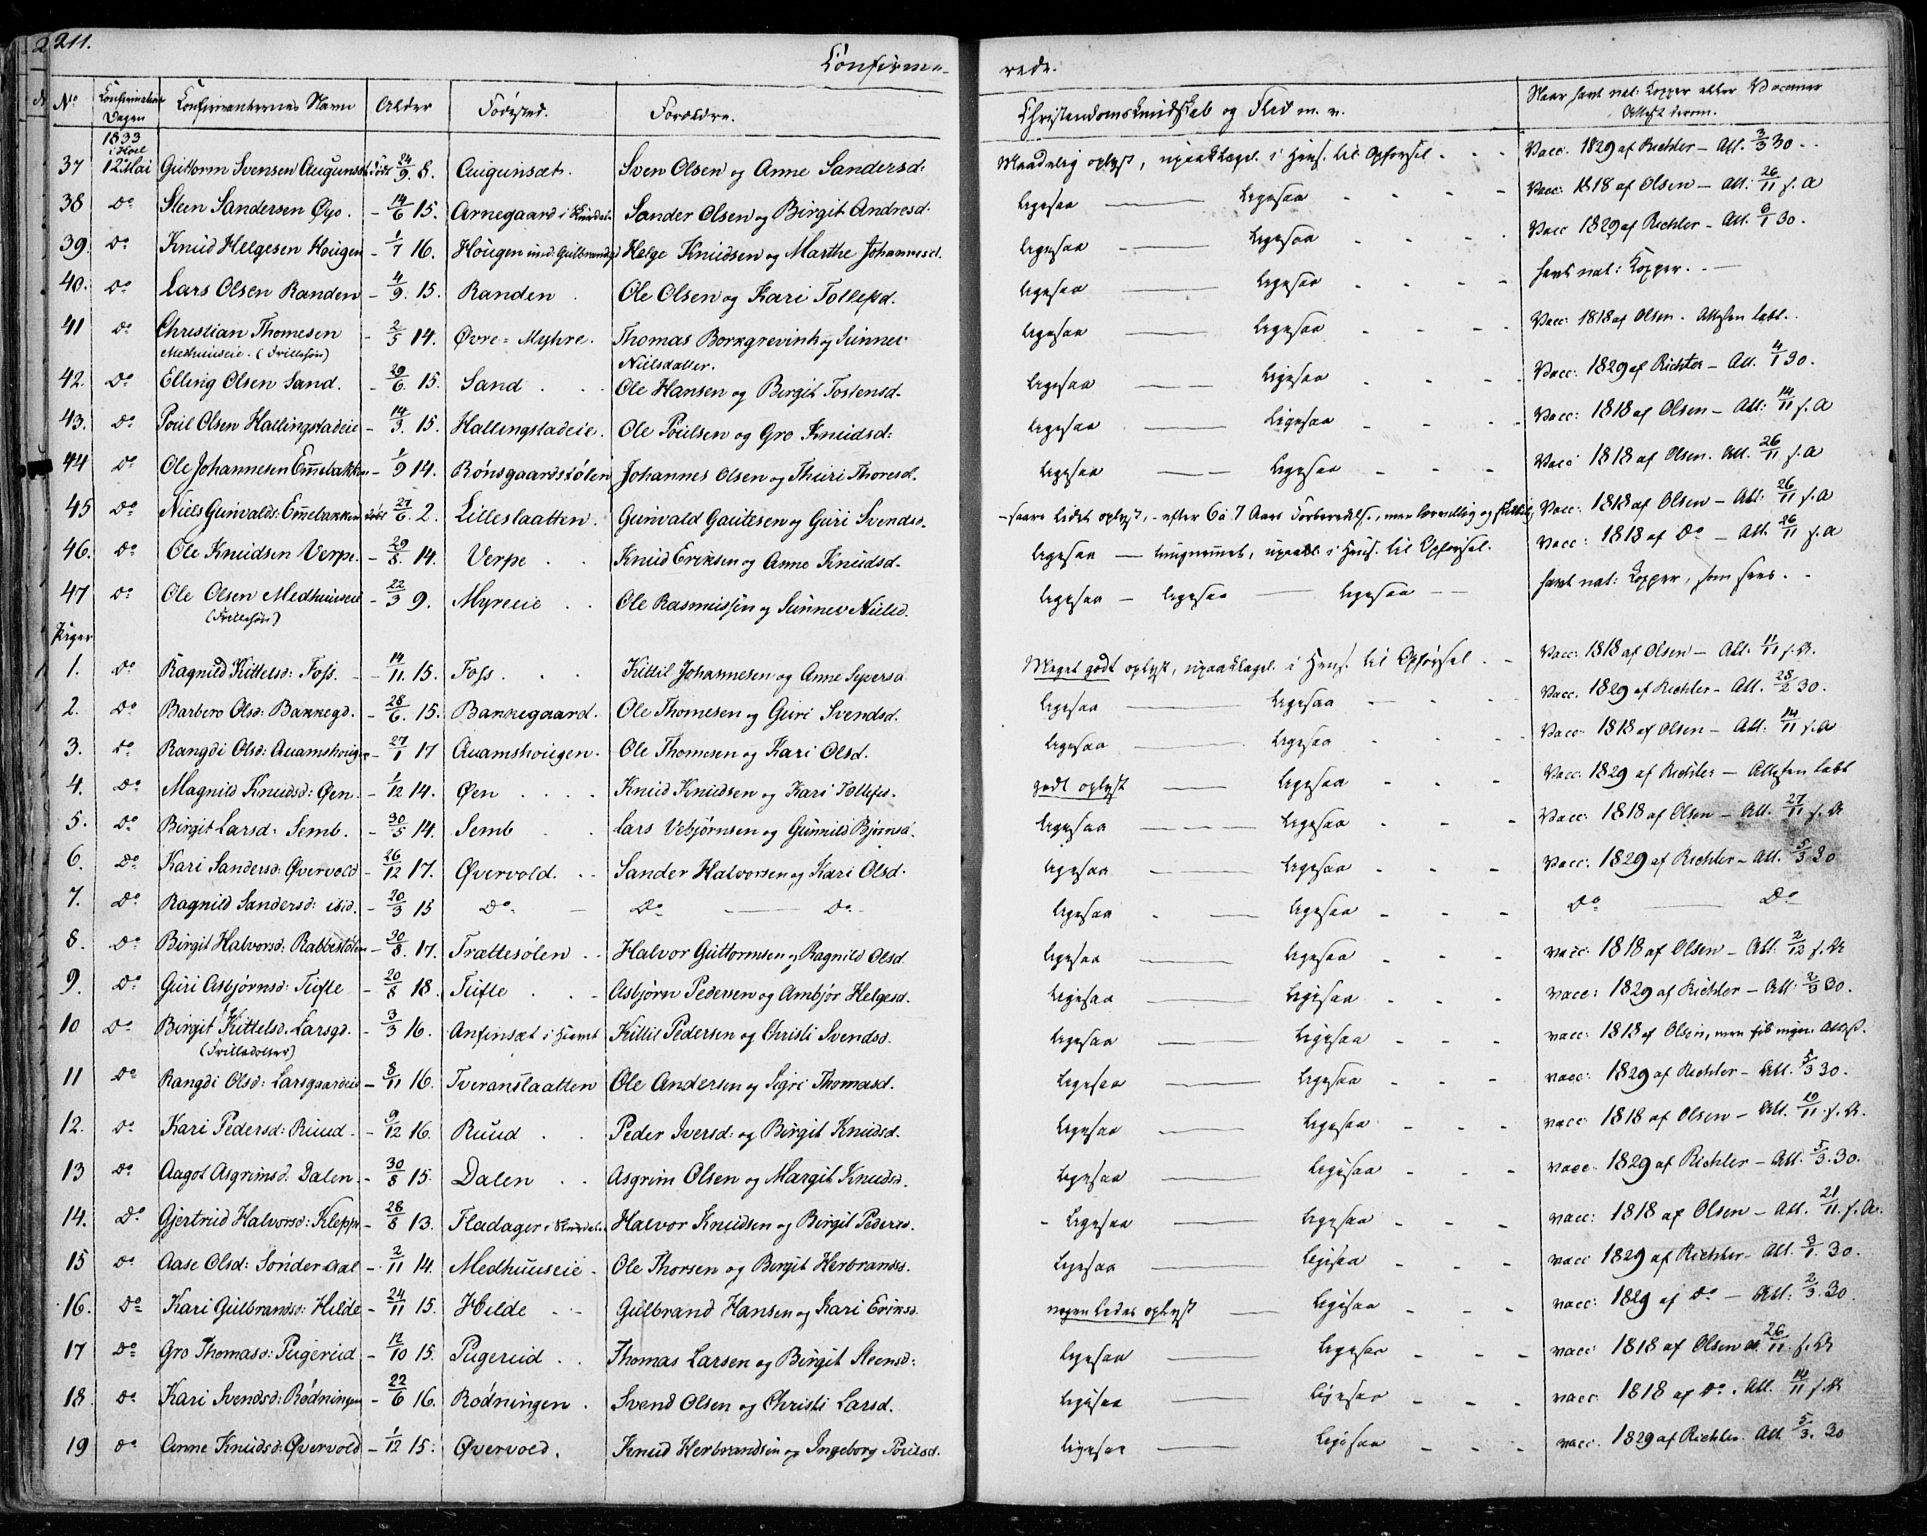 211.
Confirme-
rede.
No Confirmations Dagen Confirmanternes Navn Alder Fødested. Forældre. Christendomskundskab og Flid m. v. Naar havt nat: Kopper eller Vaccine Attest derom.
1833
37 12 Mai Guttorm Svensen Augunsæt født 24/9. 8. Augunsæt. Sven Olsen og Anne Sandersd: Maadelig oplyst, upaaklagel. i Hens. til Opførsel Vacc. 1829 af Richter - Att. 3/3 30.
38 Do Steen Sandersen Øyo. - 14/6 15. Arnegaard i Sander Olsen og Birgit Andresd. ligesaa — ligesaa Vacc: 1818 af Olsen - Att. 26/11 s. A
39. Do Knud Helgesen Hougen - 1/7 16. Hougen und: Gulbrandsgd Helge Knudsen og Marthe Johannesd. ligesaa — ligesaa Vacc 1829 af Richter - Att. 6/1 30.
40. Do Lars Olsen Randen - 4/9. 15. Randen Ole Olsen og Kari Tollefsd. ligesaa — ligesaa havt nat: Kopper. -
41 Do Christian Thomesen - 2/5 14. Øvre=Myhre. Thomas Borkgrevink og Sunnev ligesaa — ligesaa Vacc: 1818 af Olsen. Attesten tabt.
Medhuuseie. (Frillesøn) Nielsdatter.
42. Do Elling Olsen Sand. - 29/6. 15. Sand Ole Hansen og Birgit Tostensd. ligesaa — ligesaa Vacc: 1829 af Richter - Att. 4/1 30.
43. Do Poul Olsen Hallingstadeie - 14/3. 15. Hallingstadeie. Ole Poulsen og Gro Knudsd: ligesaa — ligesaa Vacc: 1818 af Olsen - Att: 14/11 s. A
44 Do Ole Johannesen Em̅ebakken - 1/9 14. Rønsgaardstølen Johannes Olsen og Thuri Thoresd. ligesaa — ligesaa Vacc: 1818 af Olsen. Att. 26/11 s. A
45 Do Niels Gunvalds: Em̅ebakken født 27/6 2. Lilleslaatten. Gunvald Gautesen og Guri Svendsd. - saare lidet oplyst, - efter 6 à 7 Aars Forberedelse, men lærvillig og Vacc: 1818 af Olsen - Att: 26/11 s. A
46. Do Ole Knudsen Verpe. - 29/8. 14. Verpe Knud Eriksen og Anne Knudsd. ligesaa — tungnemmet, upaakl. i Hens. til Opførsel. Vacc: 1818 af Do - Att. 26/11 s. A
47 Do Ole Olsen Medhuuseie - 22/3 9. Myreeie Ole Rasmussen og Sunnev Nielsd. ligesaa — ligesaa — ligesaa havt nat: Kopper, som sees.
(Frillesøn)
Piger
1. Do Ragnild Kittelsd: Foss. - 14/11. 15. Foss. Kittil Johannesen og Anne Syversd Meget godt oplyst, upaaklagel. i Hens. til Opførsel. Vacc: 1818 af Olsen - Att. 11/11 s. A.
2. Do Barbero Olsd: Bakkegd. - 28/6. 15. Bakkegaard. Ole Thomesen og Guri Svendsd. ligesaa — ligesaa Vacc. 1829 af Richter - Att. 28/2 30.
3. Do Rangdi Olsd: Qvamshougen - 27/1 17 Qvamshougen. Ole Thomesen og Kari Olsd. ligesaa — ligesaa Vacc: 1818 af Olsen - Att: 14/11 s. A
4. Do Magnild Knudsd: Øen. - 1/12 14. Øen Knud Knudsen og Kari Tollefsd. godt oplyst — ligesaa Vacc: 1829 af Richter - Attesten tabt
5. Do Birgit Larsd: Semb. - 30/5 14. Semb Lars Vebjørnsen og Gunnild Bjørnsd. ligesaa — ligesaa Vacc: 1818 af Olsen - Att. 27/11 s. A
6. Do Kari Sandersd: Øvervold - 26/12 17. Øvervold. Sander Halvorsen og Kari Olsd. ligesaa — ligesaa Vacc: 1829 af Richter - Att. 5/3 30
7. Do Ragnild Sandersd: ibid. - 20/3 15 Do. — Do — Do. ligesaa ligesaa Do — Do
8. Do Birgit Halvorsd: Rabbestølen - 30/8 17. Trættestølen Halvor Guttormsen og Ragnild Olsd. ligesaa — ligesaa vacc: 1818 af Olsen - Att: 2/12 s. A
9. Do Guri Asbjørnsd: Tufte - 20/8 18. Tufte Asbjørn Pedersen og Ambjør Helgesd. ligesaa — ligesaa vacc: 1829 af Richter - Att: 2/3 30.
10 Do Birgit Kittelsd. Larsgd. - 3/3 16. Anfinsæt i Hemst Kittil Pedersen og Christi Svendsd. ligesaa — ligesaa vacc: 1818 af Olsen, men fik ingen Attest.
(Frilledotter)
11 Do Rangdi Olsd: Larsgaardeie - 8/11 16. Tveranslaatten Ole Andersen og Sigri Thomasd. ligesaa — ligesaa vacc: 1829 af Richter - Att. 5/3 30.
12. Do Kari Pedersd: Ruud. - 9/12 16. Ruud Peder Iversd: og Birgit Knudsd. ligesaa — ligesaa vacc: 1818 af Olsen - Att. 19/11. s. A.
13 Do Aagot Asgrimsd. Dalen. - 30/8 15. Dalen Asgrim Olsen og Margit Knudsd. ligesaa — ligesaa vacc: 1829 af Richter - Att. 5/3. 30.
14. Do Gjertrud Halvorsd: Klepp - 28/8 13. Fladager i Halvor Knudsen og Birgit Pedersd. ligesaa — ligesaa vacc: 1818 af Olsen - Att. 21/11. s. A.
15 Do Aase Olsd: Sønder Aal - 2/11 14. Medhuuseie - Ole Thorsen og Birgit Herbrandsd. ligesaa — ligesaa vacc 1829 af Richter - Att. 3/1. 30.
16. Do Kari Gulbrandsd: Hilde - 24/11 15. Hilde Gulbrand Hansen og Kari Eriksd. nogenledes oplyst — ligesaa vacc: 1829 af Do - Att: 2/3. 30.
17 Do Gro Thomasd: Pugerud - 12/10 15. Pugerud Thomas Larsen og Birgit Steensd: ligesaa — ligesaa vacc: 1818 af Olsen 26/11 s. A
18 Do Kari Svendsd: Rødningen - 22/6 16. Rødningen Svend Olsen og Christi Larsd. ligesaa — ligesaa vacc: 1818 af Do. Att. 14/11 s. A
19 Do Anne Knudsd: Øvervold - 1/12 15. Øvervold. Knud Herbrandsen og Ingeborg Poulsd. ligesaa — ligesaa vacc: 1829 af Richter. Att. 5/3. 30